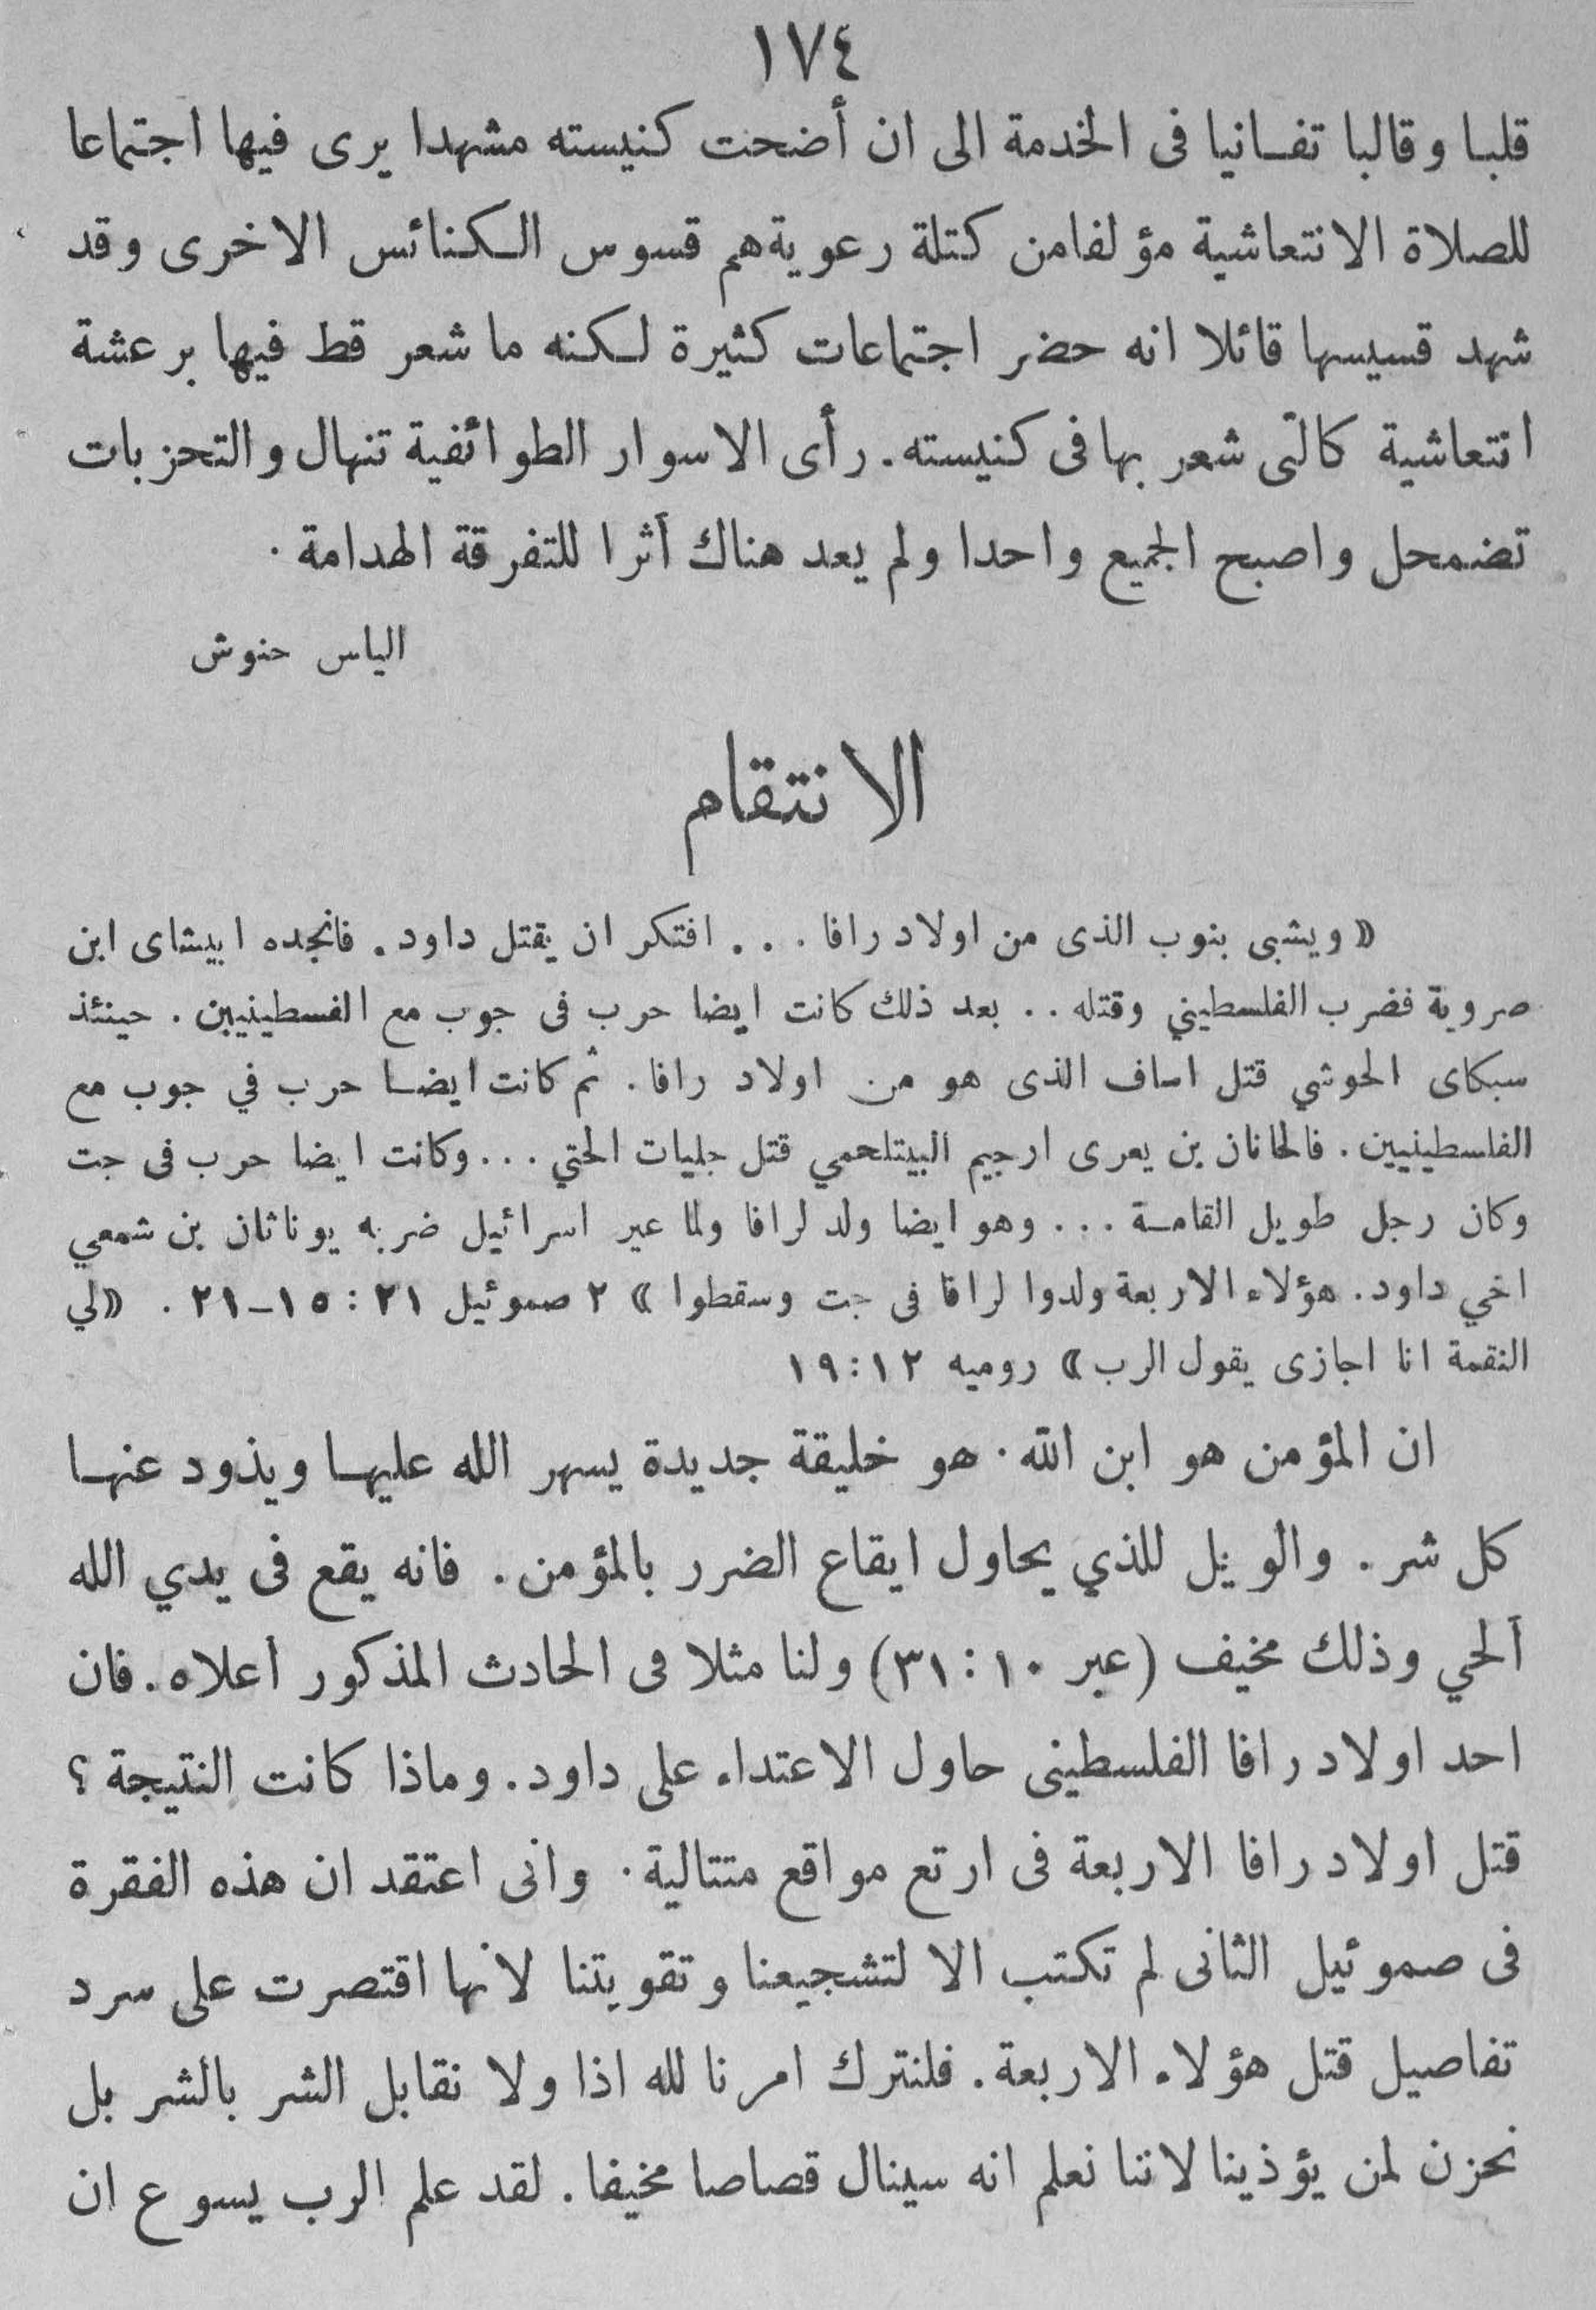 ١٧٤
قلبا وقالبا تفانيا فى الخدمة الى ان أضحت كنيسته مشهدا يرى فيها اجتماعا
للصلاة الانتعاشية مؤلفامن كتلة رعويةهم قسوس الكنائس الاخرى وقد
شهد قسيسها قائلا انه حضر اجتماعات كثيرة لكنه ما شعر قط فيها برعشة
انتعاشية كالتى شعر بهافى كنيسته. رأى الاسوار الطوائفية تنهال والتحزبات
تضمحل واصبح الجميع واحدا ولم يعد هناك أثرا للتفرقة الهدامة .
الياس حنوش
الانتقام
«ويشبى بنوب الذى من اولاد رافا ... افتكر ان يقتل داود. فانجده ابيشاى ابن
صروية فضرب الفلسطيني وقتله .. بعد ذلك كانت ايضا حرب فى جوب مع الفسطينيين . حينئذ
سبكاى الحوشي قتل اساف الذى هو من اولاد رافا. ثم كانت ايضا حرب في جوب مع
الفلسطينيين. فالحانان بن يعرى ارجيم البيتلحمي قتل جليات الحتي ... وكانت ايضا حرب فى جت
وكان رجل طويل القامة ... وهو ايضا ولد لرافا ولما عير اسرائيل ضربه يوناثان بن شمعي
اخي داود. هؤلاء الاربعة ولدوا لرافا فى جت وسقطوا» ٢ صموئيل ٢١ : ١٥-٢١ . «لي
النقمة انا اجازى يقول الرب» روميه ١٢:١٩
ان المؤمن هو ابن الله . هو خليقة جديدة يسهر الله عليها ويذود عنها
كل شر . والويل للذي يحاول ايقاع الضرر بالمؤمن . فانه يقع فى يدي الله
ألحي وذلك مخيف (عبر ١٠ : ٣١) ولنا مثلا فى الحادث المذكور أعلاه. فان
احد اولاد رافا الفلسطينى حاول الاعتداء على داود. وماذا كانت النتيجة ؟
قتل اولاد رافا الاربعة فى ارتع مواقع متتالية . وانى اعتقد ان هذه الفقرة
فى صموئيل الثانى لم تكتب الا لتشجيعنا وتقويتنا لانها اقتصرت على سرد
تفاصيل قتل هؤلاء الاربعة. فلنترك امرنا لله اذا ولا نقابل الشر بالشر بل
نحزن لمن يؤذينا لاننا نعلم انه سينال قصاصا مخيفا . لقد علم الرب يسوع ان